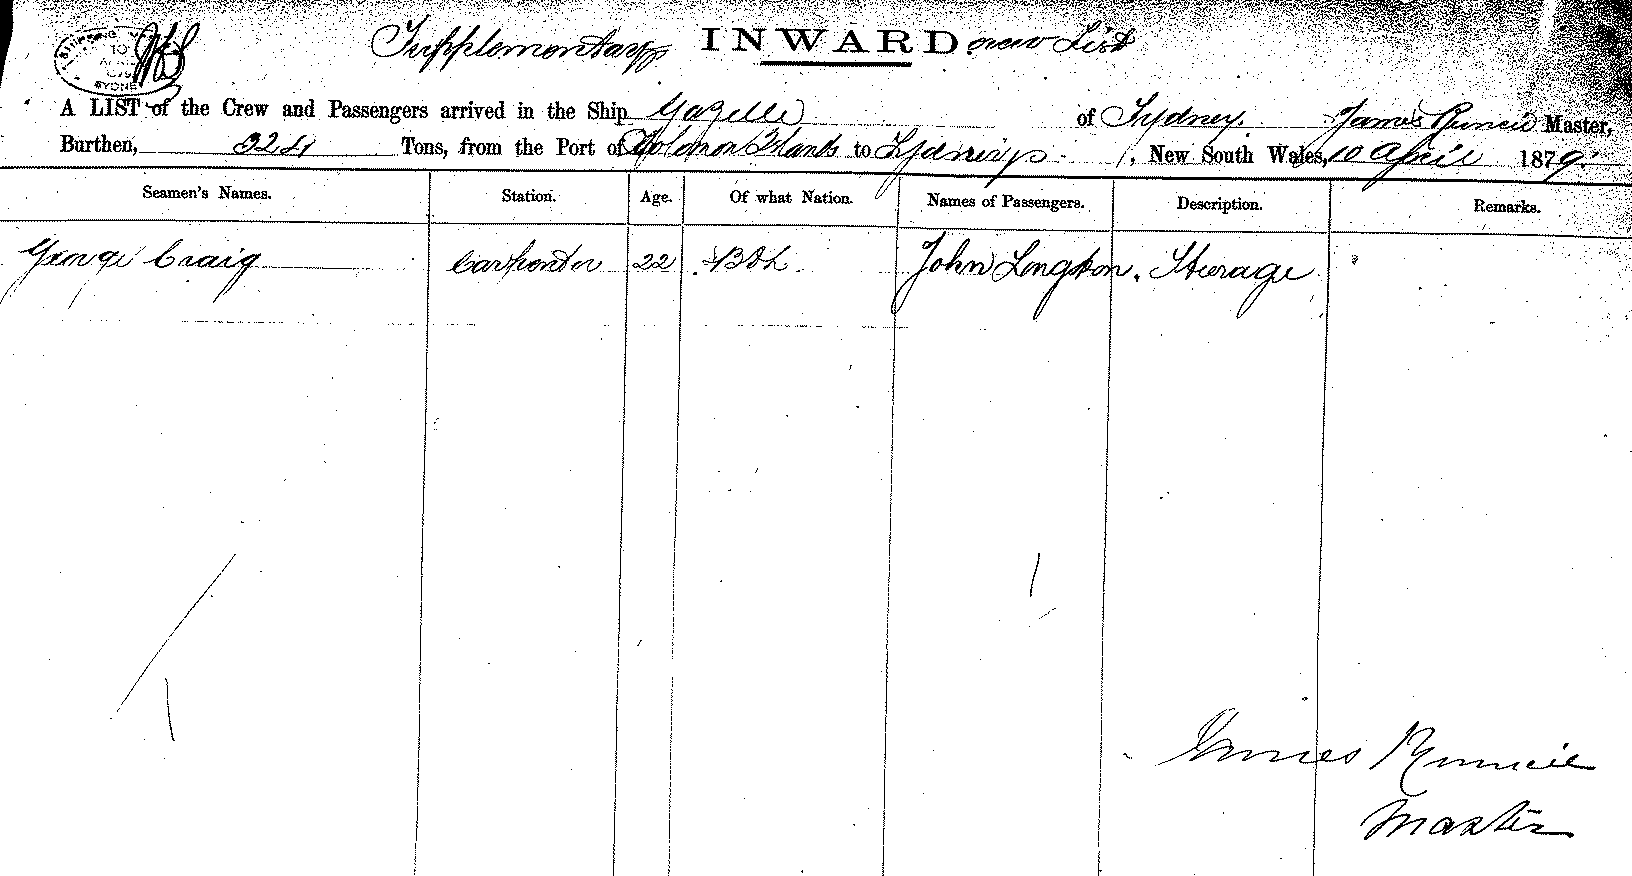 SHIPPING
10
SYDNEY
Supplementary INWARD new List
A LIST of the Crew and Passengers arrived in the Ship Gazelle of Sydney. James Runcie Master,
Burthen, Tons, from the Port of Solomon Islands to Sydney, New South Wales, 10 April 1879.
Seamen's Names. Station. Age. Of what Nation. Names of Passengers. Description. Remarks.
George Craig Carpenter 22 John Langton. Steerage
James Runcie
Master